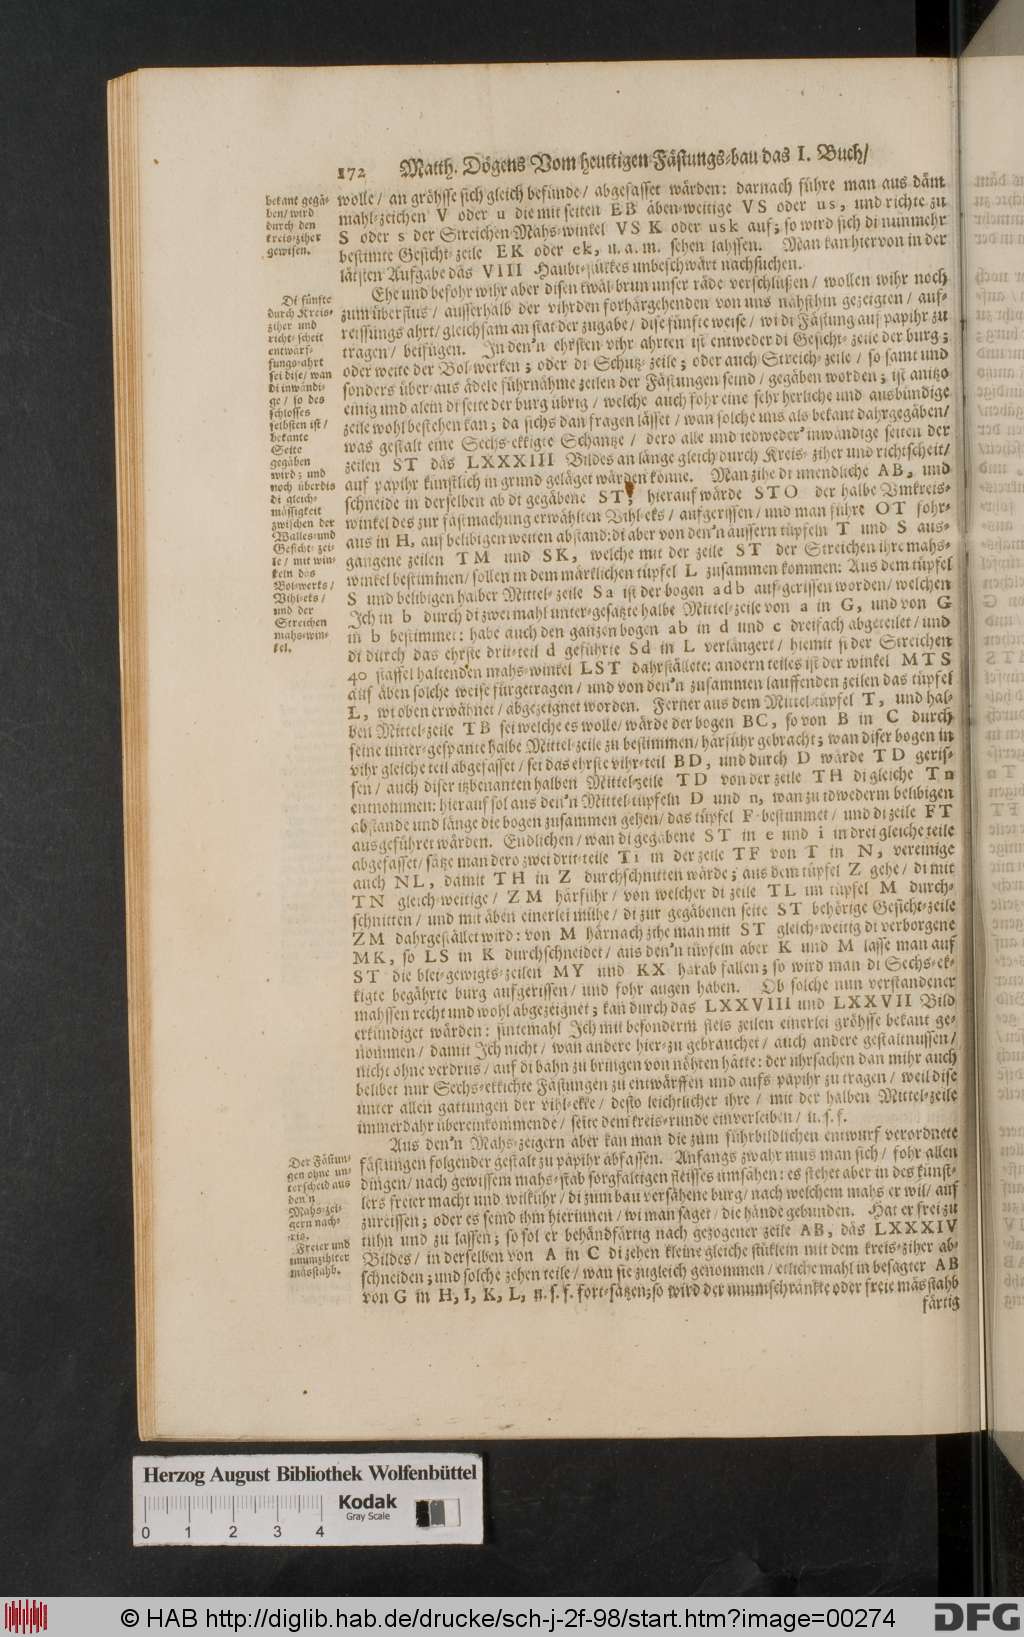 172 Matth. Dögens Vom heuttigen Fästungs-bau das I. Buch/
bekant gegä-
ben/ wird
durch den
kreis-ziher
gewisen.
wolle/ an gröhsse sich gleich befünde/ abgefasset wärden: darnach führe man aus däm
mahl-zeichen V oder u die mit seiten EB äben-weitige VS oder us, und richte zu
S oder s der Streichen-Mahs-winkel VSK oder usk auf; so wird sich di nunmehr
bestimte Gesicht-zeile EK oder ek, u.a.m. sehen lahssen. Man kan hiervon in der
lätsten Aufgabe das VIII Haubt-stükkes unbeschwärt nachsuchen.
Di fünfte
durch Kreis-
ziher und
richt-scheit
entwärf-
fungs-ahrt
sei dise/ wan
di inwändi-
ge/ so des
schlosses
selbsten ist/
bekante
Seite
gegäben
wird; und
noch überdis
di gleich-
mässigkeit
zwischen der
Walles-und
Gesicht-zei-
le/ mit win-
keln das
Bol-werks/
Vihl-eks/
und der
Streichen
mahs-win-
kel.
Ehe und befohr wihr aber disen kwäl-brun unser räde verschlüßen/ wollen wihr noch
zum überflus/ ausserhalb der vihrden forhärgehenden von uns nähsthin gezeigten/ auf-
reissungs ahrt/ gleichsam an stat der zugabe/ dise fünfte weise/ wi di Fästung auf papihr zu
tragen/ beifügen. In den'n ehrsten vihr ahrten ist entweder di Gesicht-zeile der burg;
oder weite der Bol-werken; oder di Schutz-zeile; oder auch Streich-zeile/ so samt und
sonders über-aus ädele führnähme zeilen der Fästungen seind/ gegäben worden; ist anitzo
einig und alein di seite der burg übrig/ welche auch fohr eine sehr herliche und ausbündige
zeile wohl bestehen kan; da sichs dan fragen lässet/ wan solche uns als bekant dahrgegäben/
was gestalt eine Sechs-ekkigte Schantze/ dero alle und iedweder' inwändige seiten der
zeilen ST das LXXXIII Bildes an länge gleich durch Kreis-ziher und richtscheit/
auf papihr künstlich in grund geläget wärden könne. Man zihe di unendliche AB, und
schneide in derselben ab di gegäbene ST; hierauf wärde STO der halbe Umkreis-
winkel des zur fästmachung erwählten Vihl-eks/ aufgerissen/ und man führe OT fohr-
aus in H, auf belibigen weiten abstand: di aber von den'n äussern tüpfeln T und S aus-
gangene zeilen TM und SK, welche mit der zeile ST der Streichen ihre mahs-
winkel bestimmen/ sollen in dem märklichen tüpfel L zusammen kommen: Aus dem tüpfel
S und belibigen halber Mittel-zeile Sa ist der bogen adb auf-gerissen worden/ welchen
Ich in b durch di zwei mahl unter-gesatzte halbe Mittel-zeile von a in G, und von G
in b bestimmet: habe auch den ganzen bogen ab in d und c dreifach abgeteilet/ und
di durch das ehrste drit-teil d geführte Sd in L verlängert/ hiemit si der Streichen
40 staffel haltenden mahs-winkel LST dahrställete: andern teiles ist der winkel MTS
auf äben solche weise fürgetragen/ und von den'n zusammen lauffenden zeilen das tüpfel
L, wi oben erwähnet/ abgezeignet worden. Ferner aus dem Mittel-tüpfel T, und hal-
ben Mittel-zeile TB sei welche es wolle/ wärde der bogen BC, so von B in C durch
seine unter-gespante halbe Mittel-zeile zu bestimmen/ härführ gebracht; wan diser bogen in
vihr gleiche teil abgefasset/ sei das ehrste vihr-teil BD, und durch D wärde TD geris-
sen/ auch diser itzbenanten halben Mittel-zeile TD von der zeile TH di gleiche Tn
entnommen: hierauf sol aus den'n Mittel-tüpfeln D und n, wan zu idwederm belibigen
abstande und länge die bogen zusammen gehen/ das tüpfel F bestimmet/ und di zeile FT
ausgeführet wärden. Endlichen/ wan di gegäbene ST in e und i in drei gleiche teile
abgefasset/ sätze man dero zwei drit-teile Ti in der zeile TF von T in N, vereinige
auch NL, damit TH in Z durchschnitten wärde; aus dem tüpfel Z gehe/ di mit
TN gleich-weitige/ ZM härführ/ von welcher di zeile TL im tüpfel M durch-
schnitten/ und mit äben einerlei mühe/ di zur gegäbenen seite ST behörige Gesicht-zeile
ZM dahrgestället wird: von M härnach zihe man mit ST gleich-weitig di verborgene
MK, so LS in K durchschneidet/ aus den'n tüpfeln aber K und M lasse man auf
ST die blei-gewigts-zeilen MY und KX härab fallen; so wird man di Sechs-ek-
kigte begährte burg aufgerissen/ und fohr augen haben. Ob solche nun verstandener
mahssen recht und wohl abgezeignet; kan durch das LXXVIII und LXXVII Bild
erkündiget wärden: sintemahl Ich mit besonderm fleis zeilen einerlei gröhsse bekant ge-
nommen/ damit Ich nicht/ wan andere hier-zu gebrauchet/ auch andere gestaltnussen/
nicht ohne verdrus/ auf di bahn zu bringen von nöhten hätte: der uhrsachen dan mihr auch
belibet nur Sechs-ekkichte Fästungen zu entwärffen und aufs papihr zu tragen/ weil dise
unter allen gattungen der vihl-ekke/ desto leichtlicher ihre/ mit der halben Mittel-zeile
immerdahr übereinkommende/ seite dem kreis-runde einverleiben/ u.s.f.
Der Fästun-
gen ohne un-
terscheid aus
den'n
Mahs-zei-
gern nach-
ris.
Freier und
unumzihlter
mässtahb.
Aus den'n Mahs-zeigern aber kan man die zum führbildlichen entwurf verordnete
fästungen folgender gestalt zu papihr abfassen. Anfangs zwahr mus man sich/ fohr allen
dingen/ nach gewissem mahs-stab sorgfältigen fleisses umsähen: es stehet aber in des künst-
lers freier macht und wilkühr/ di zum bau versähene burg/ nach welchem mahs er wil/ auf
zureissen; oder es seind ihm hierinnen/ wi man saget/ die hände gebunden. Hat er frei zu
tuhn und zu lassen; so sol er behändfärtig nach gezogener zeile AB, das LXXXIV
Bildes/ in derselben von A in C di zehen kleine gleiche stüklein mit dem kreis-ziher ab-
schneiden; und solche zehen teile/ wan sie zugleich genommen/ etliche mahl in besagter AB
von G in H, I, K, L, u.s.f. fort-sätzen; so wird der unumschränkte oder freie mässtahb
färtig
Herzog August Bibliothek Wolfenbüttel
0 1 2 3 4
Kodak
Gray Scale
© HAB http://diglib.hab.de/drucke/sch-j-2f-98/start.htm?image=00274
DFG